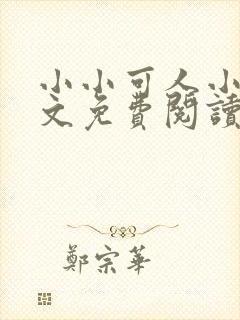 小小可人小
文免費閱讀
鄭宗華